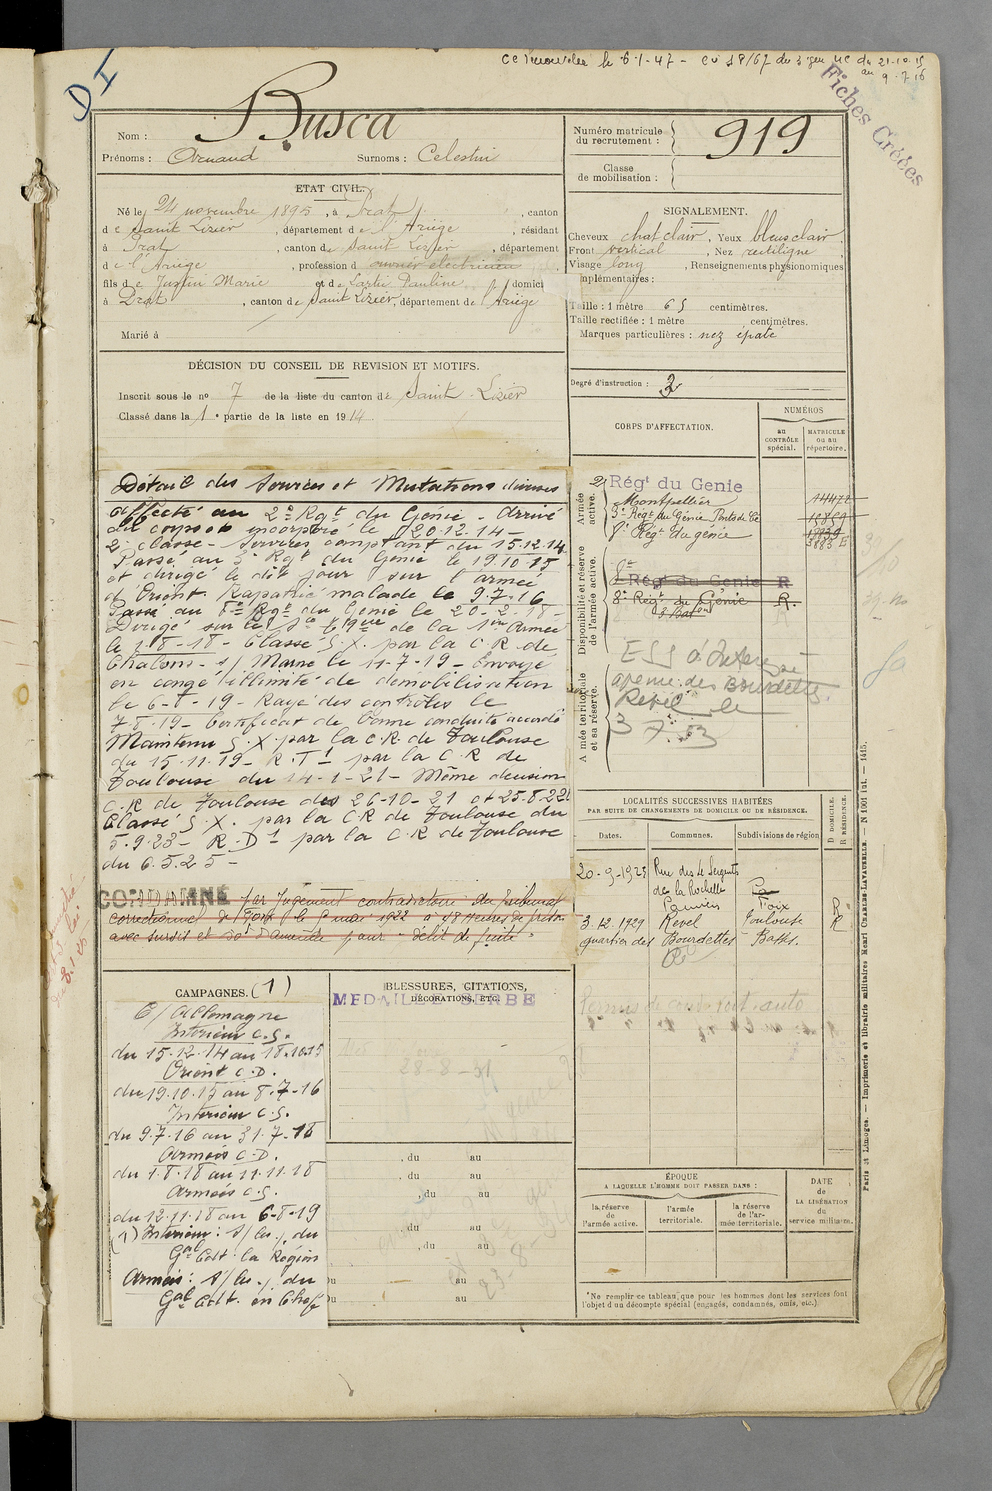 CC renouvelée le 6-1-47 - CV 18/67 du 3e gen du 21-10-15
au 9.7.16
Fiches Créées
D I
Nom : Busca
Prénoms : Arnaud Surnoms : Celestin
Numéro matricule du recrutement : 919
Classe de mobilisation :
ETAT CIVIL.
Né le 24 novembre 1895, à Prat, canton
de Saint Lizier, département de l'Ariège, résidant
à Prat, canton de Saint Lizier, département
de l'Ariège, profession d ouvrier électricien
fils de Justin Marie et de Pauline, domici
à Prat, canton de Saint Lizier, département de l'Ariège
Marié à
SIGNALEMENT.
Cheveux chat clair, Yeux bleus clair
Front vertical, Nez rectiligne,
Visage long, Renseignements physionomiques
mplémentaires :
Taille : 1 mètre 65 centimètres.
Taille rectifiée : 1 mètre centimètres.
Marques particulières : nez épaté
Degré d'instruction : 3
DÉCISION DU CONSEIL DE REVISION ET MOTIFS.
Inscrit sous le no 7 de la liste du canton de Saint-Lizier
Classé dans la 1e partie de la liste en 1914.
Détail des Services et Mutations diverses
Affecté au 2e Rgt du Génie - Arrivé
au corps et incorporé le 20.12.14 -
2e classe - Services comptant du 15.12.14
Passé au 3e Rgt du Génie le 19.10.15
et dirigé le dit jour sur l'armée
d'Orient. Rapatrié malade le 9.7.16
Passé au 8e Rgt du Génie le 20-2-18-
Dirigé sur la de la 1ère Armée
le 1-8-18- Classé S.X. par la C R de
Chalons-s/Marne le 11-7-19- Envoyé
en congé illimité de démobilisation
le 6-8-19- Rayé des contrôles le
7-8-19- Certificat de bonne conduite accordé
Maintenu S.X. par la C.R. de Toulouse
du 15-11-19- R.T1 par la C R de
Toulouse du 14-1-21- Même décision
C.R de Toulouse des 26-10-21 et 25.8.22
Classé S.X. par la C R de Toulouse du
5.9.23- R.D1 par la C R de Toulouse
du 6.5.25-
CONDAMNÉ par Jugement contradictoire du Tribunal
correctionnel de Foix le 6 mai 1922 à 48 heures de prison
avec sursis et 50f d'amende pour "délit de fuite"
CORPS D'AFFECTATION.
NUMÉROS
au CONTRÔLE spécial.
MATRICULE ou au répertoire.
Armée active.
2e Régt du Genie
Montpellier
3e Régt du Génie
8e Régt du génie
Disponibilité et réserve de l'armée active.
8e Régt du Genie R
8e Régt du Génie R.
A mée territoriale et sa réserve.
Revel le
3 7.53
LOCALITÉS SUCCESSIVES HABITÉES
PAR SUITE DE CHANGEMENTS DE DOMICILE OU DE RÉSIDENCE.
Dates. Communes. Subdivisions de région
D DOMICILE. R RÉSIDENCE.
20-9-1923 Rue des 4 Sergents
de la Rochelle
Pamiers Foix R
3.12.1929 Revel Toulouse R
quartier des Bourdettes
Permis de conduire auto
CAMPAGNES. (1)
C/ Allemagne
Intérieur C.S.
du 15.12.14 au 18.10.15
Orient C.D.
du 19.10.15 au 8.7-16
Intérieur C.S.
du 9.7.16 au 31.7.18
Armées C.D.
du 1.8.18 au 11.11.18
Armées C.S.
du 12.11.18 au 6-8-19
(1) Intérieur : s/ , du
Gal Cdt la Région
Armées : s/ , du
Gal Cdt. en Chef
BLESSURES, CITATIONS,
DÉCORATIONS, ETC.
MEDAILLE SERBE
28-8-31
, du au
, du au
, du au
, du au
, du au
u au
u au
ÉPOQUE
A LAQUELLE L'HOMME DOIT PASSER DANS :
la réserve de l'armée active.
l'armée territoriale.
la réserve de l'ar-mée territoriale.
DATE de LA LIBÉRATION du service militaire.
*Ne remplir ce tableau que pour les hommes dont les services font
l'objet d'un décompte spécial (engagés, condamnés, omis, etc.)
Paris et Limoges. — Imprimerie et librairie militaires Henri CHARLES-LAVAUZELLE. — N 1001 lut. — 1415.